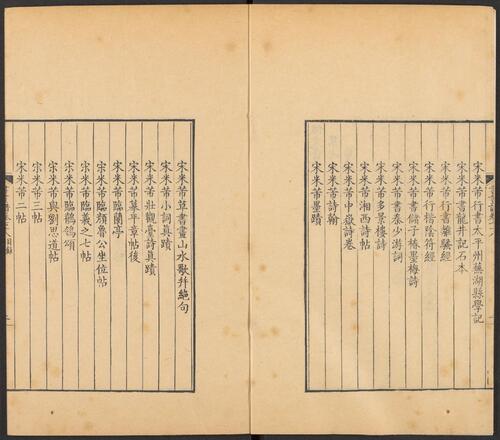 宋米芾行書太平州蕪湖縣學記
宋米芾書龍井記石本
宋米芾行書離騷經
宋米芾行楷陰符經
宋米芾書儲子椿墨梅詩
宋米芾書秦少游詞
宋米芾多景樓詩
宋米芾湘西詩帖
宋米芾中嶽詩卷
宋米芾詩翰
宋米芾墨蹟
宋米芾草書畫山水歌并絕句
宋米芾小詞真蹟
宋米芾壯觀臺詩真蹟
宋米芾華平章帖後
宋米芾臨蘭亭
宋米芾臨顏魯公坐位帖
宋米芾臨羲之七帖
宋米芾臨鶺鴒頌
宗米芾與劉思道帖
宗米芾三帖
宋米芾二帖